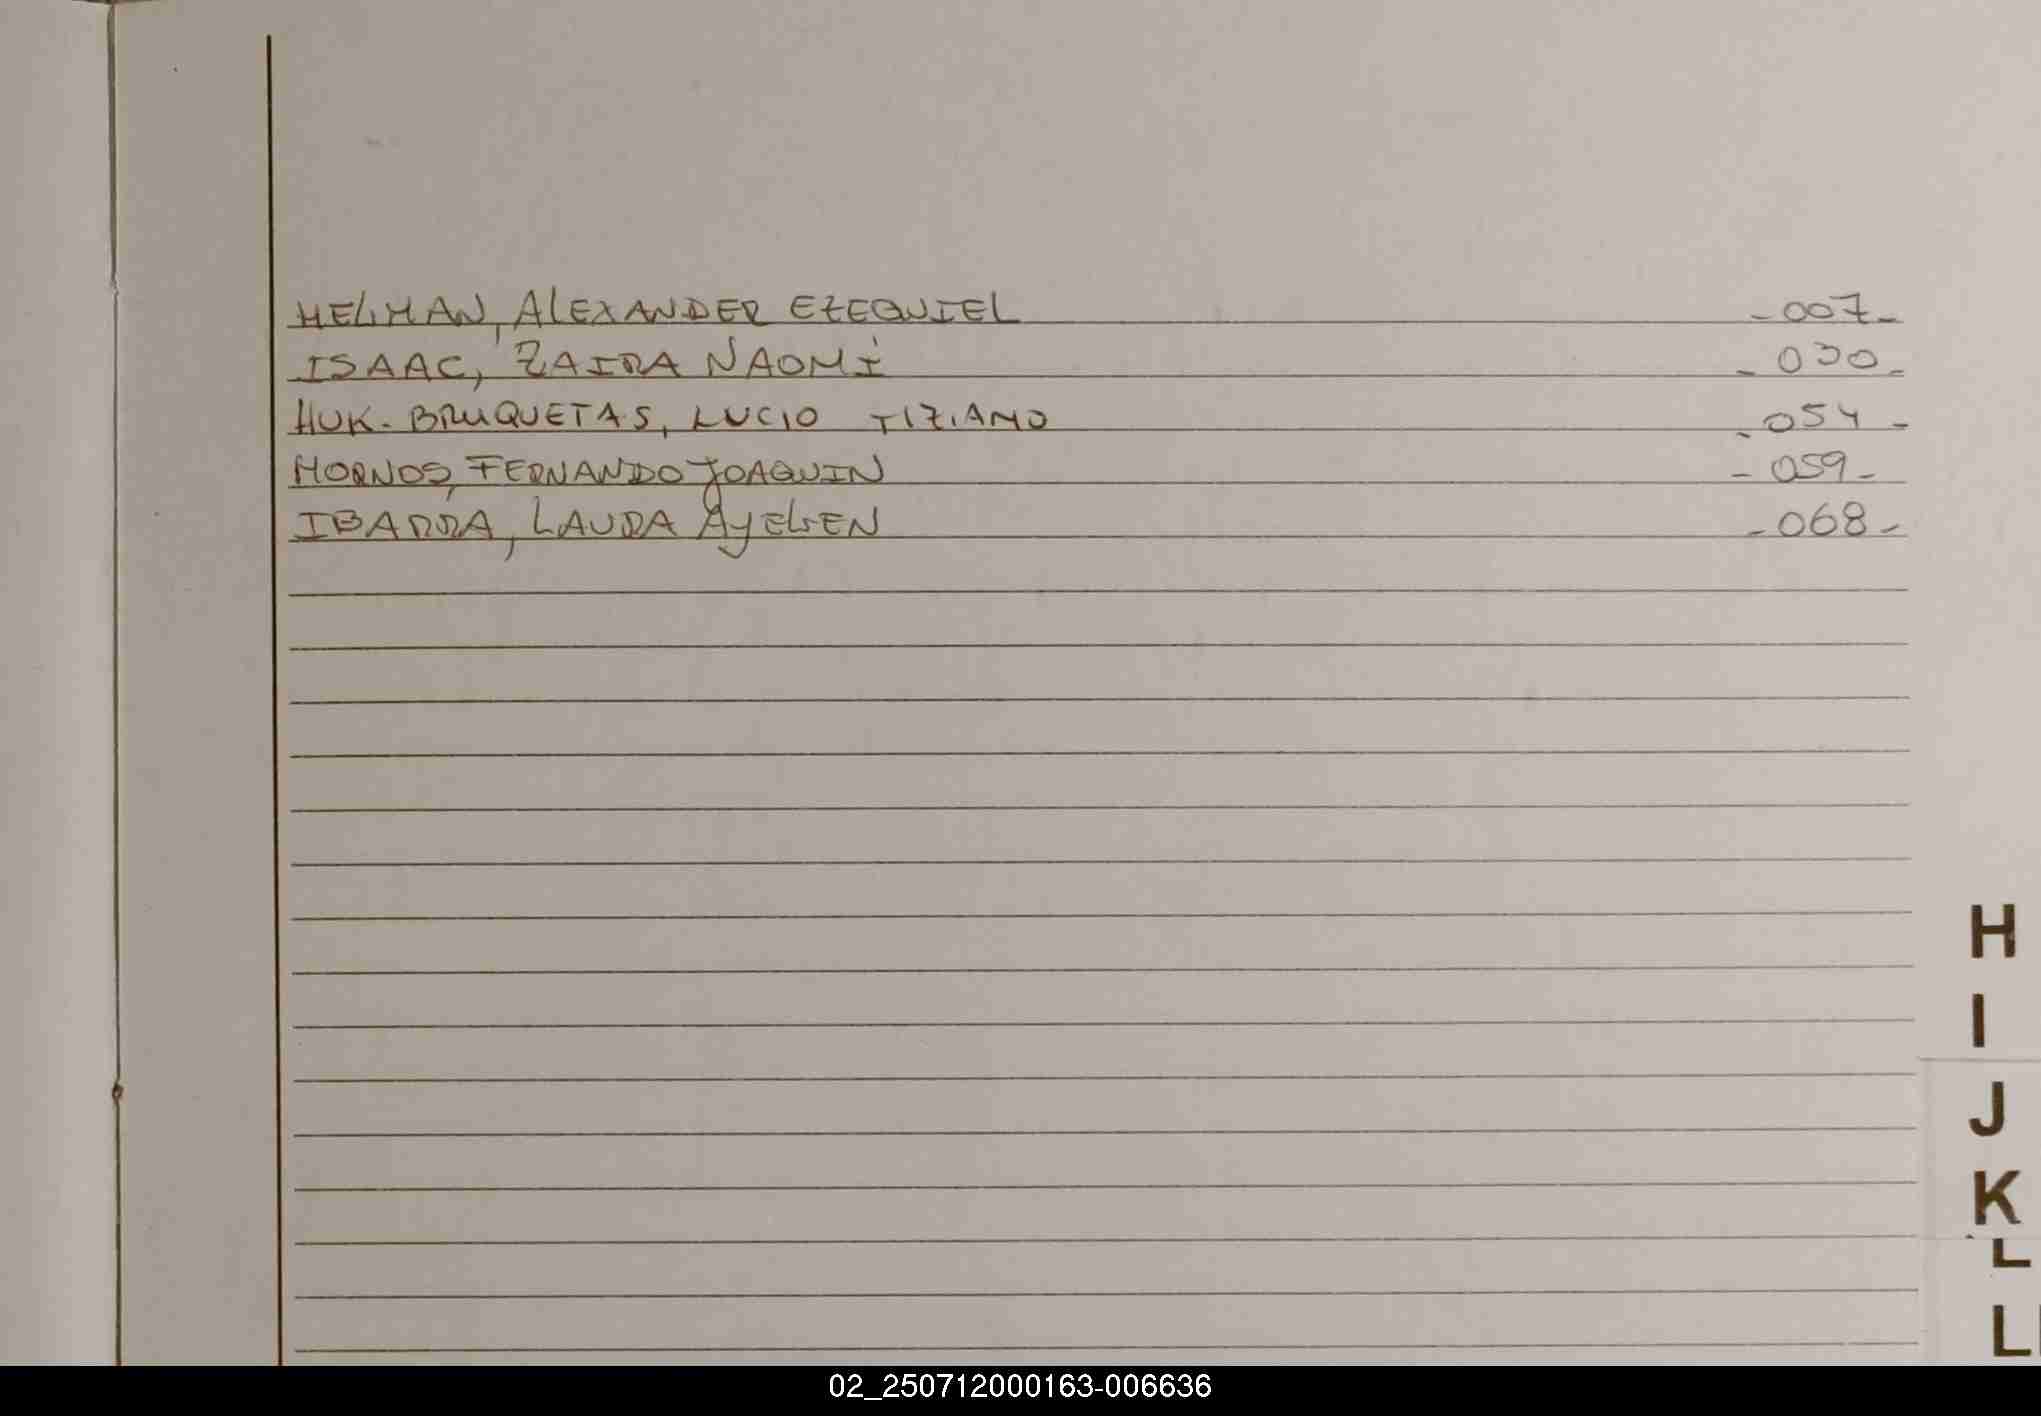 HELMAN, ALEXANDER EZEQUIEL -007-
ISAAC, ZAIRA NAOMÍ -030-
HUK. BRUQUETAS, LUCIO TIZIANO -054-
HORNOS, FERNANDO JOAQUIN -059-
IBARRA, LAURA AYELEN -068-
H
I
J
K
L
LL
02_250712000163-006636